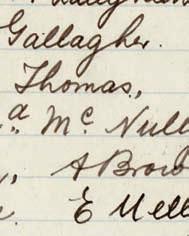 Gallagher.
Thomas,
a Mc Null
A Brow
E Mell